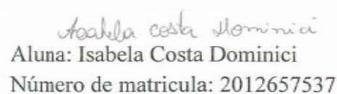 Isabela Costa Dominici
Aluna: Isabela Costa Dominici
Número de matricula: 2012657537